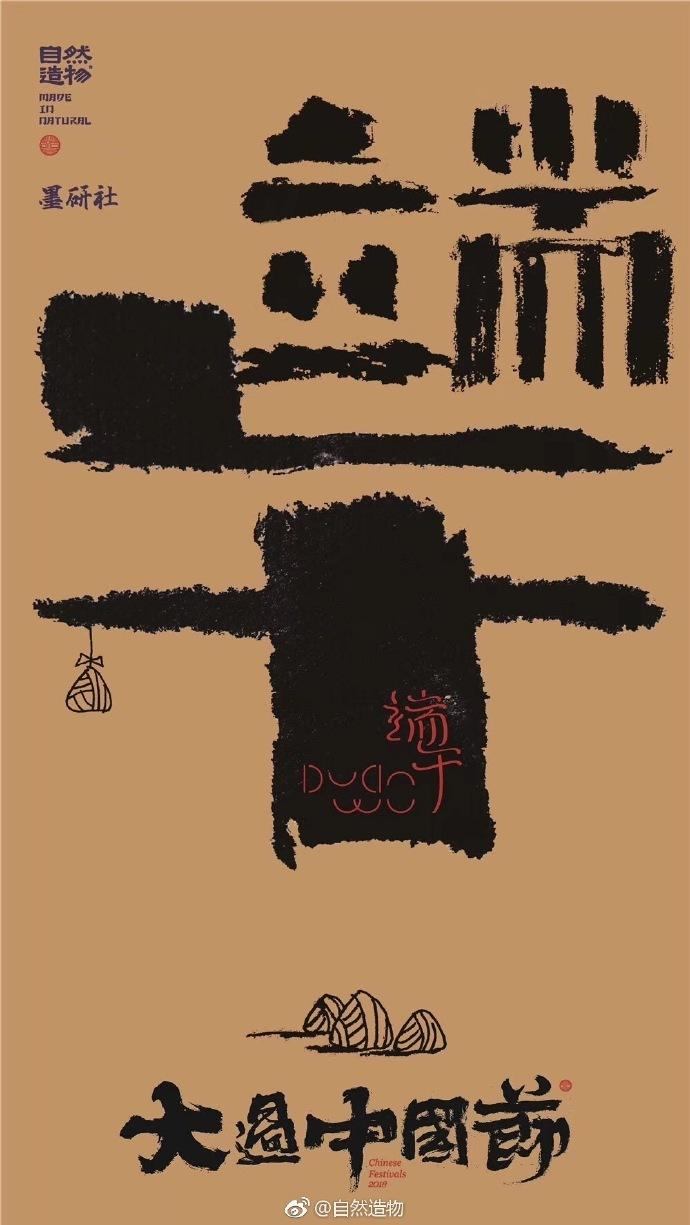 自然
造物
MADE
IN
NATURAL
墨研社
端
午
端午
DUAN
WU
大過中國節
Chinese
Festivals
2018
@自然造物